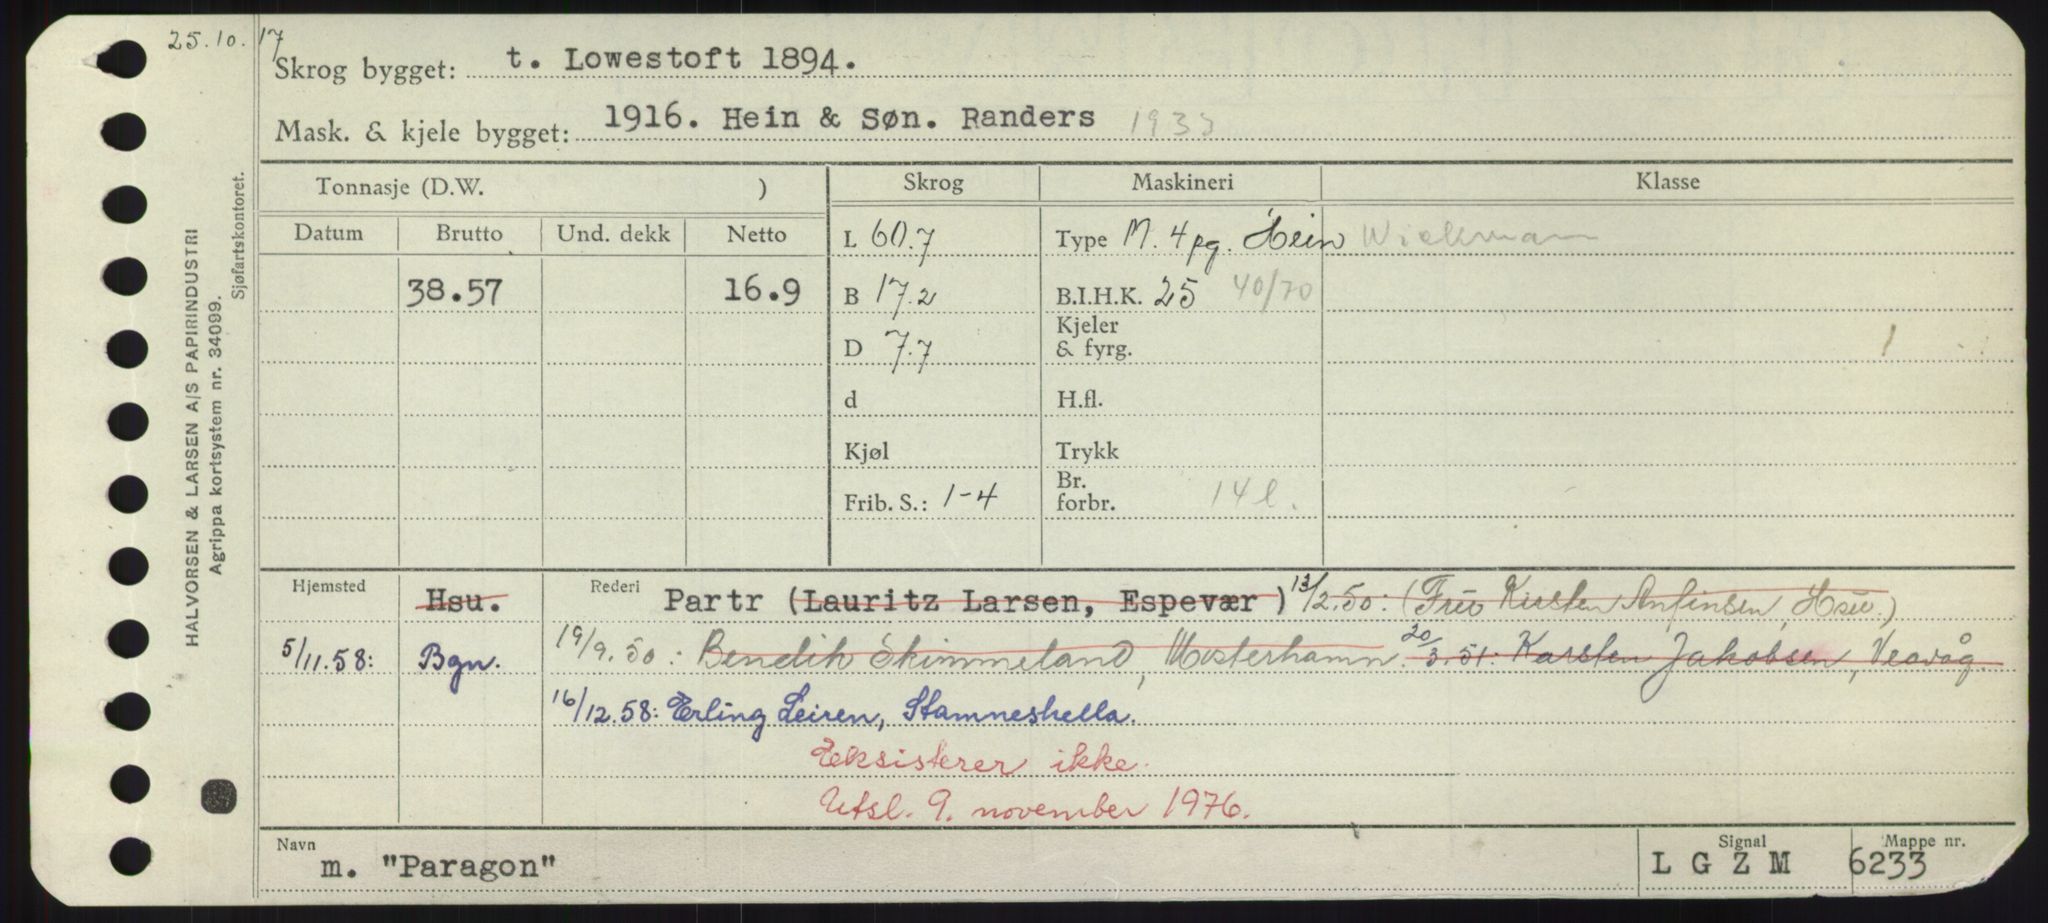 25.10.17
Skrog bygget: t. Lowestoft 1894.
Mask. & kjele bygget: 1916. Hein & Søn. Randers 1933
Tonnasje (D.W. ) Skrog Maskineri Klasse
Datum Brutto Und. dekk Netto L 60.7 Type M. 4 pg. Hein Wickmann
38.57 16.9 B 17.2 B.I.H.K. 25 40/70
Kjeler
D 7.7 & fyrg.
d H.fl.
Kjøl Trykk
Br.
Frib. S.: 1-4 forbr. 14 l.
Hjemsted Hsu. Rederi Partr (Lauritz Larsen, Espevær) 13/2.50: (Fru Kirsten Anfinsen, Hsu.)
5/11.58: Bgn. 19/9.50: Bendik Skimmeland, Mosterhamn. 20/3.51: Karsten Jakobsen, Veavåg.
16/12.58: Erling Leiren, Stamneshella.
Eksisterer ikke.
Utsl. 9. november 1976.
Navn Signal Mappe nr.
m. "Paragon" L G Z M 6233
HALVORSEN & LARSEN A/S PAPIRINDUSTRI
Agrippa kortsystem nr. 34099.
Sjøfartskontoret.